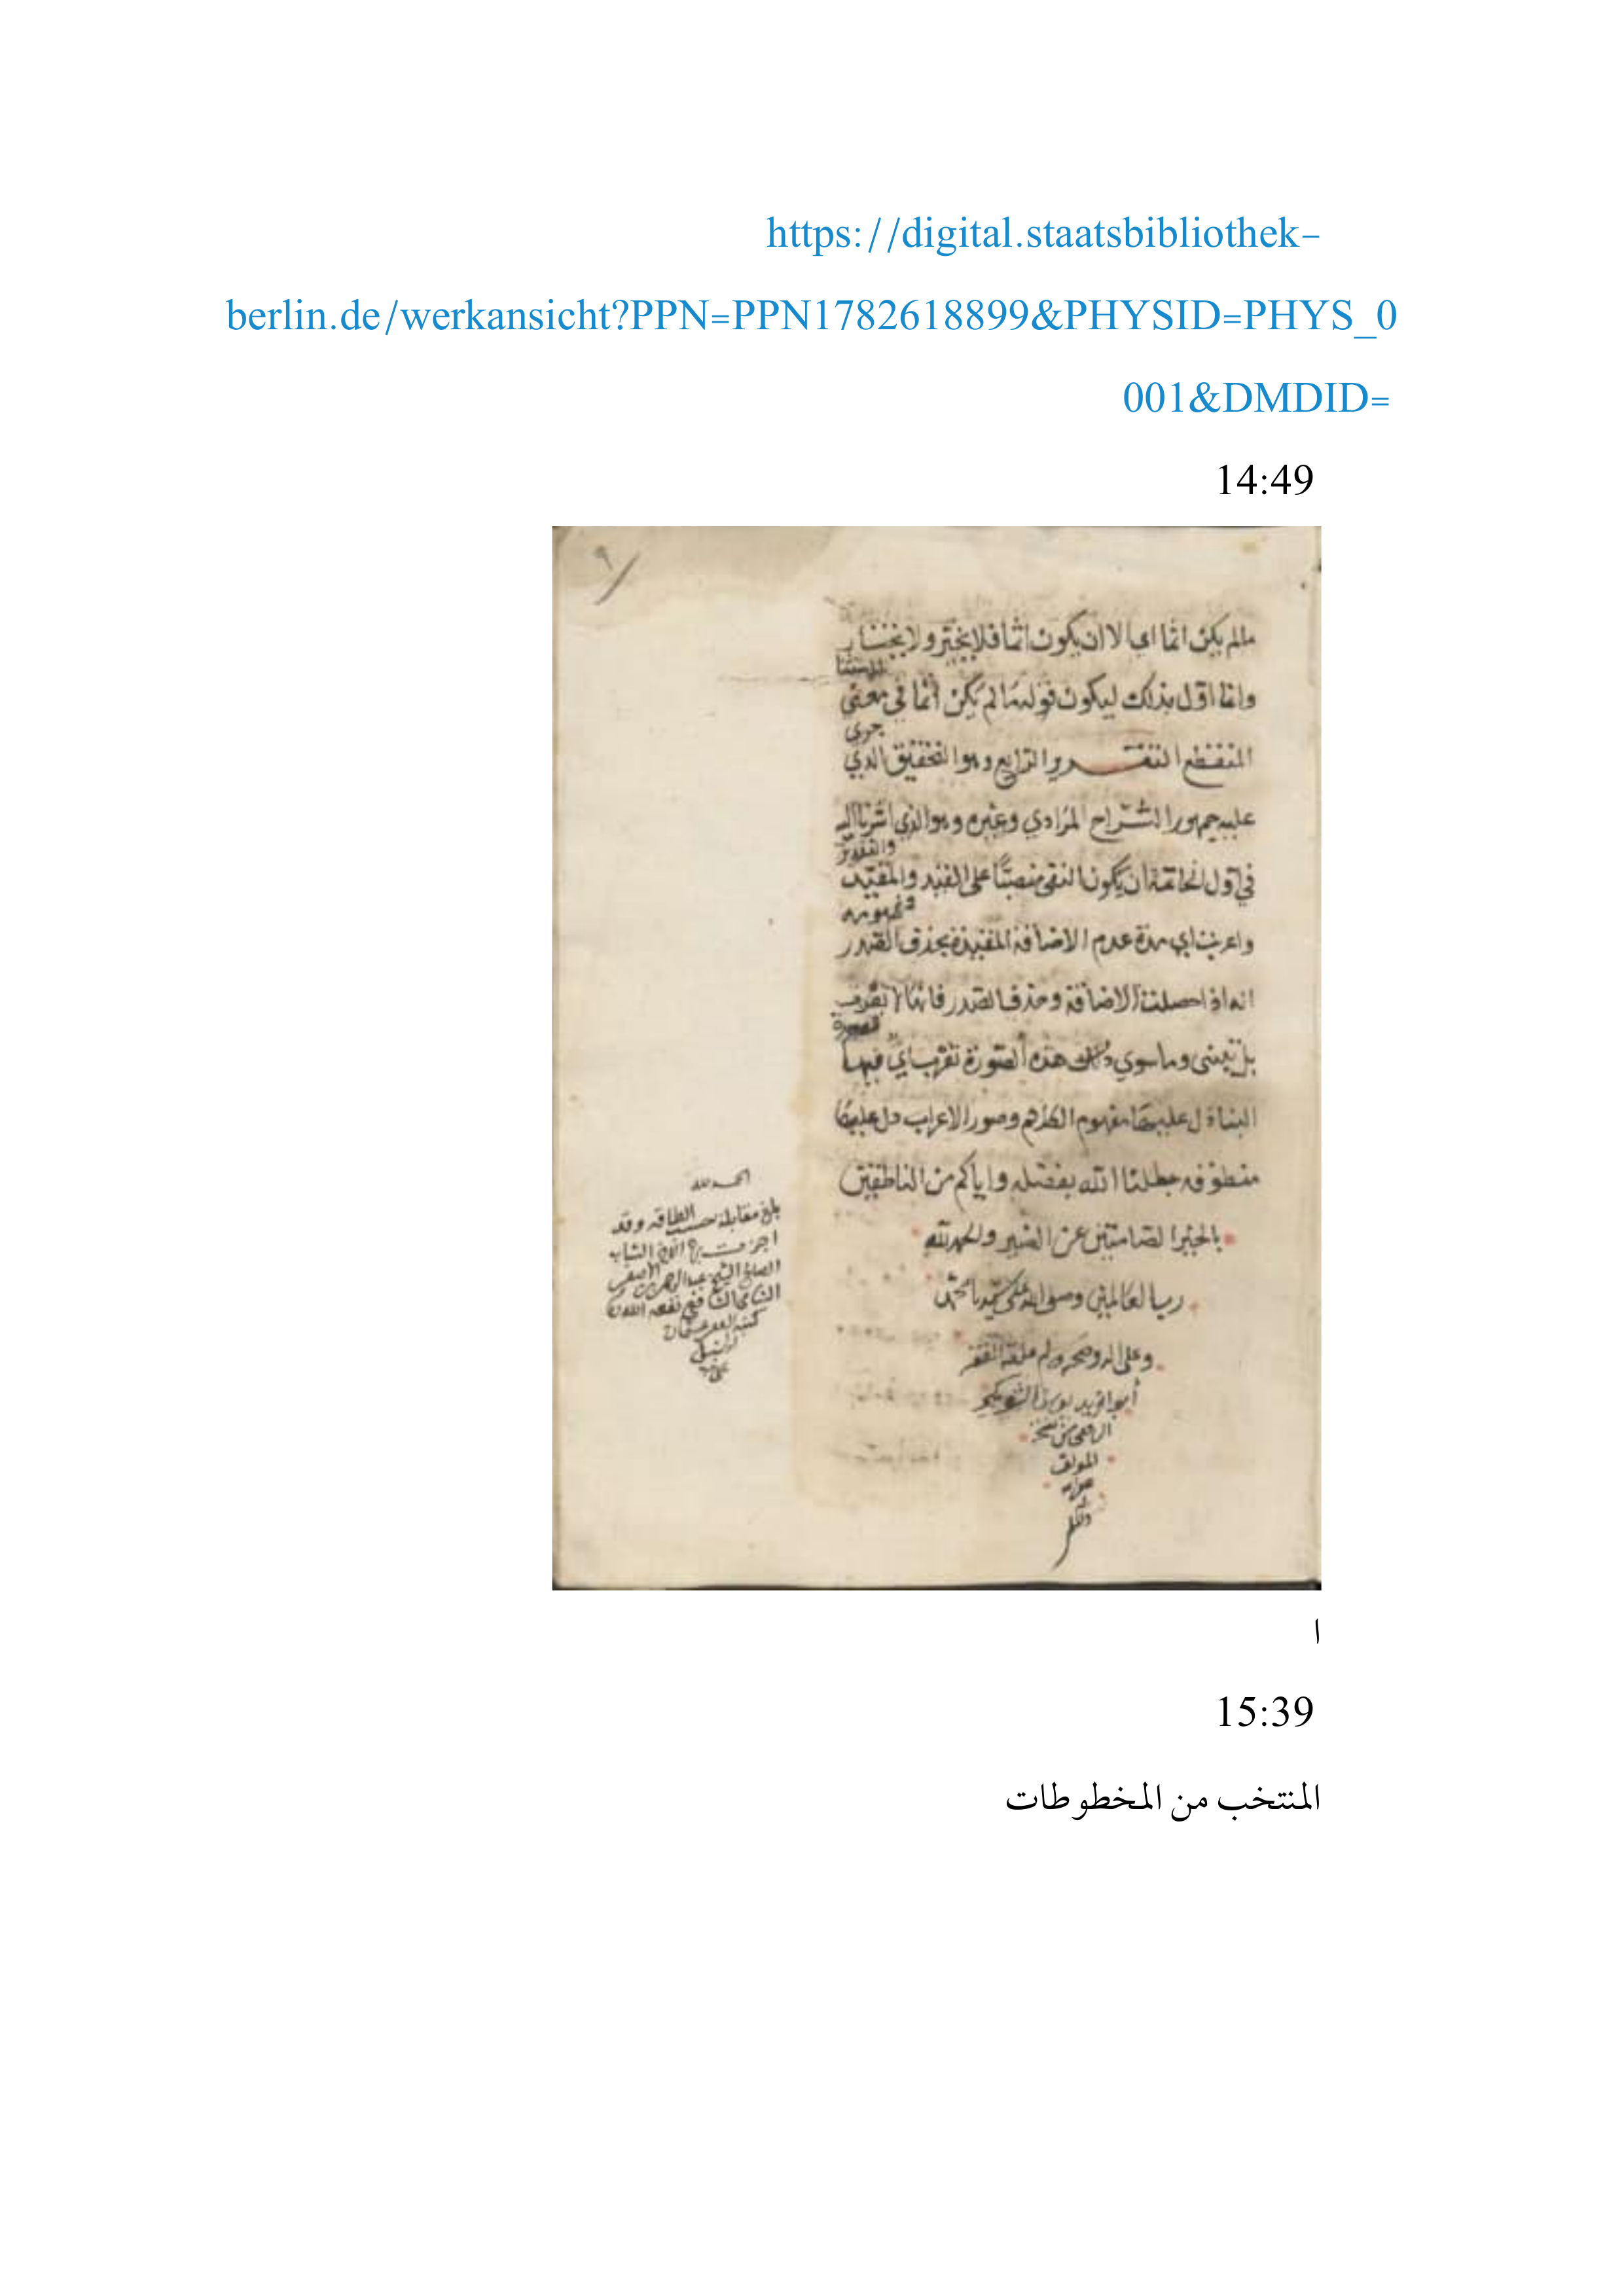 https://digital.staatsbibliothek-
berlin.de/werkansicht?PPN=PPN1782618899&PHYSID=PHYS_0
001&DMDID=
14:49
٩
مالم يكن اثما اي الا ان يكون اثما فلا يختر ولا يختار
وانما اقول بذلك ليكون قوله ما لم يكن اثما في معنى
المنقطع التقرير الرابع وهو التحقيق الذي
جرى
عليه جمهور الشراح المرادي وغيره وهو الذي اشرنا اليه
في اول الخاتمة ان يكون النفي منصبا على القيد والمقيد
والتقدير
واعربت اي مدة عدم الاضافة المقيدة بحذف الصدر
مفهومه
انه اذا حصلت الاضافة وحذف الصدر فانها لا تعرب
بل تبنى وما سوى ذلك هذه الصورة تعرب اي فيها
البناء دل عليها مفهوم الكلام وصور الاعراب دل عليها
منطوقه جعلنا الله بفضله واياكم من الناطقين
بالخير الصامتين عن الضير والحمد لله
رب العالمين وصلى الله على سيدنا محمد
وعلى اله وصحبه وسلم
المؤلف
الحمد لله
بلغ مقابلة حسب الطاقة وقد
اجزت الشاب
الصالح الشيخ عبد الرحمن
الشافعي نفعه الله
كتبه عثمان
ا
15:39
المنتخب من المخطوطات